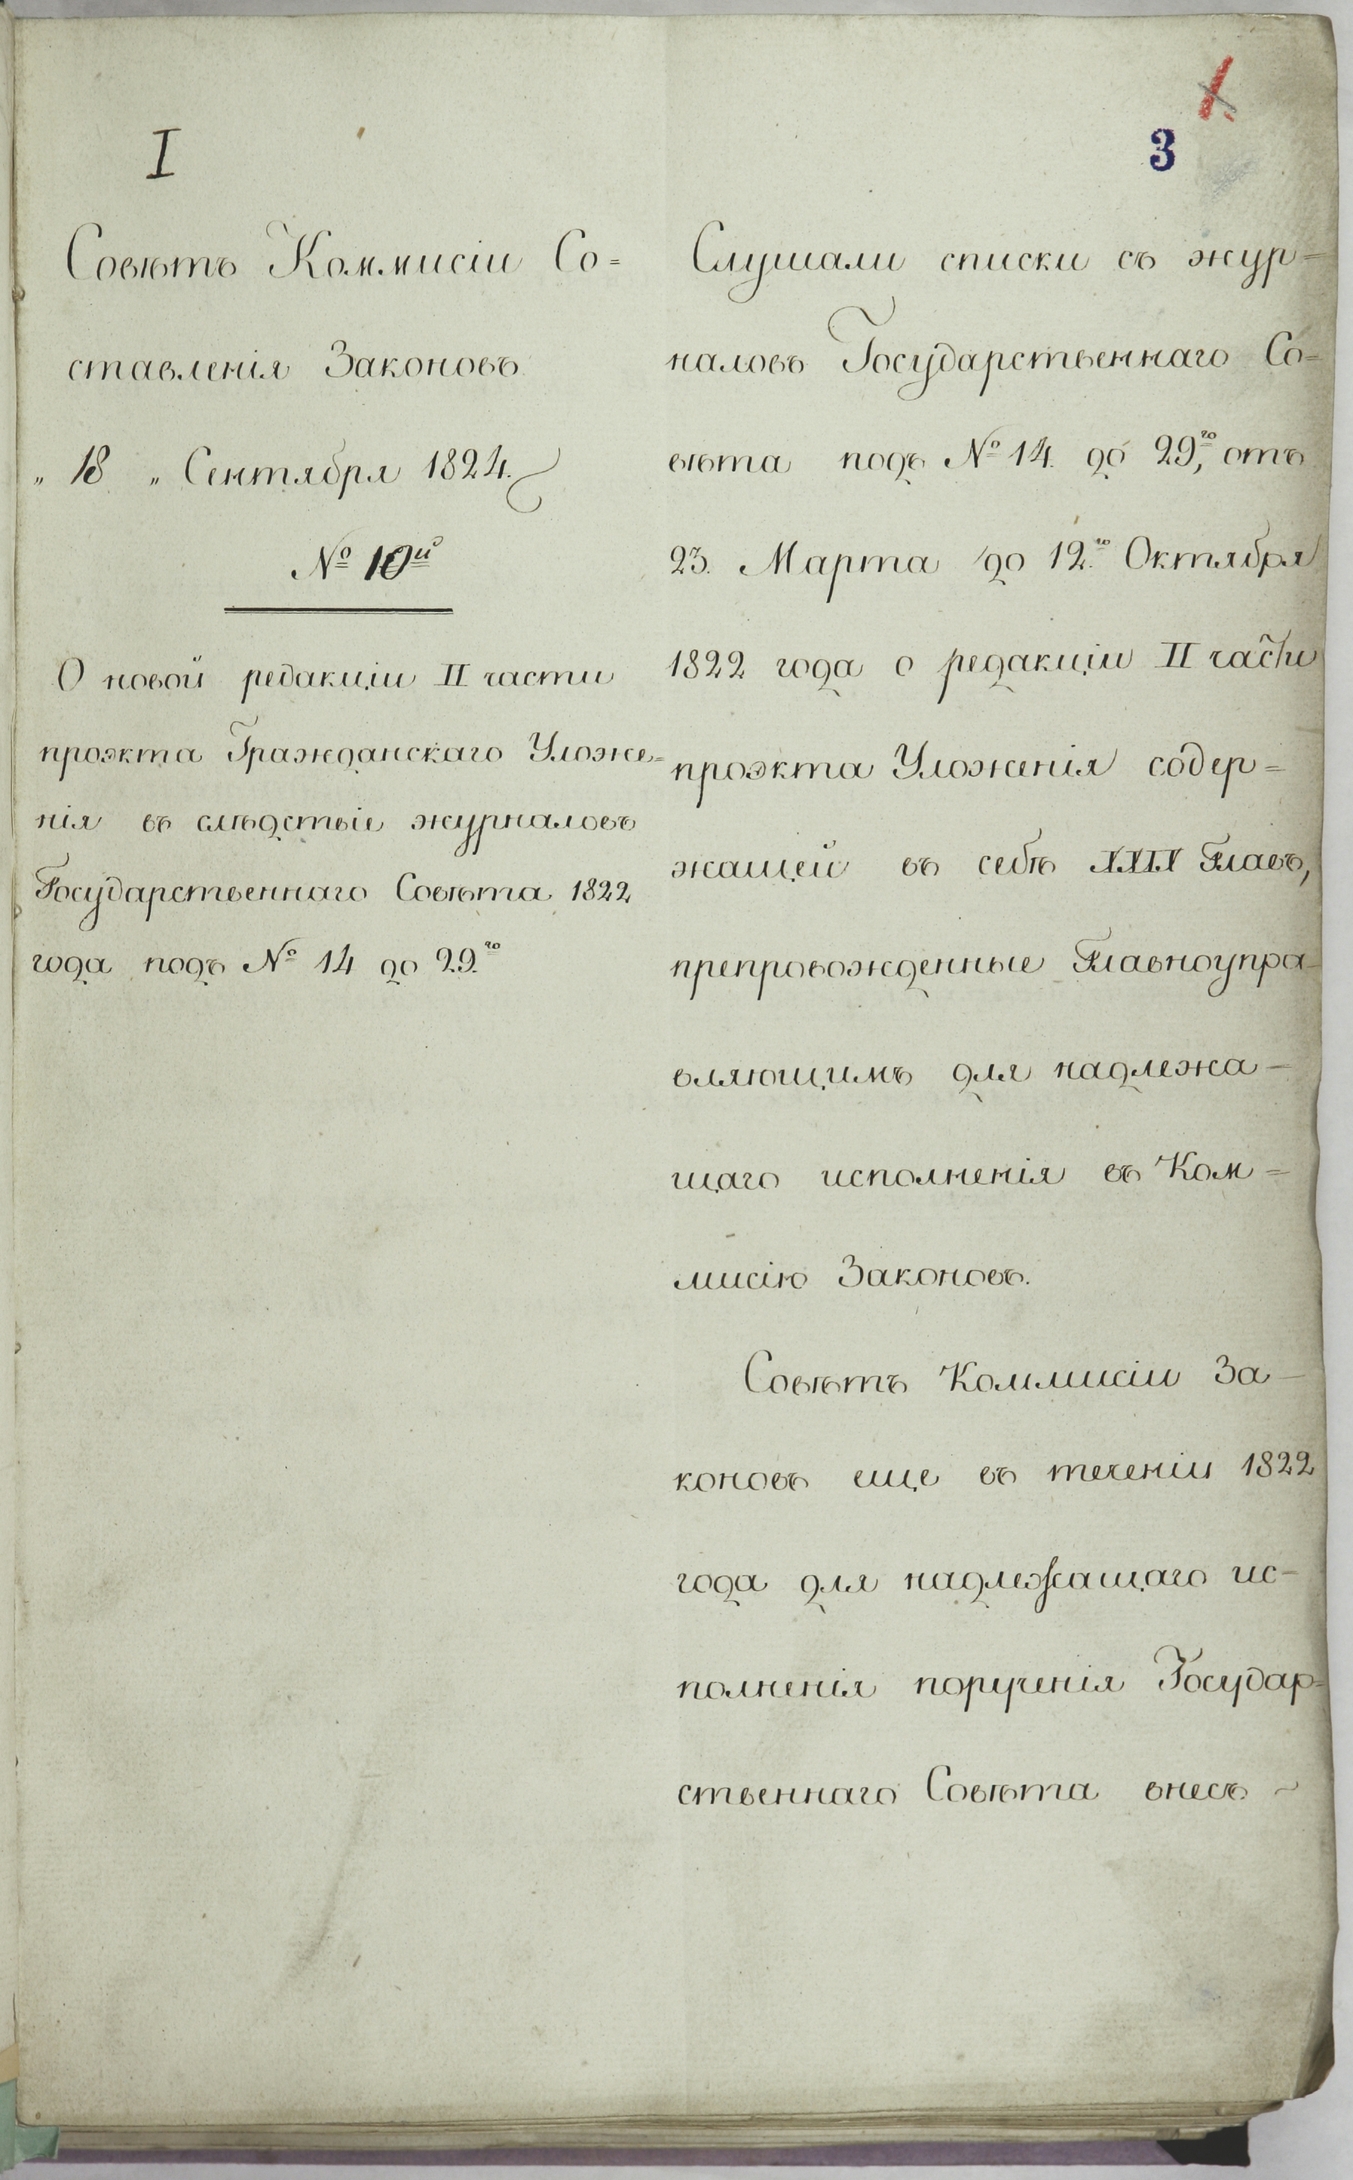 1.
3
I
Совѣтъ Коммисіи Со=
ставленія Законовъ
„ 18 „ Сентября 1824.
№ 10й
О новой редакціи II части
проэкта Гражданскаго Уложе=
нія въ слѣдствіе журналовъ
Государственнаго Совѣта 1822
года подъ № 14 до 29.го
Слушали списки съ жур=
наловъ Государственнаго Со=
вѣта подъ № 14. до 29,го отъ
23. Марта до 12.го Октября
1822 года о редакціи II части
проэкта Уложенія содер=
жащей въ себѣ XXIX Главъ,
препровожденные Главноупра=
вляющимъ для надлежа-
щаго исполненія въ Ком=
мисію Законовъ.
Совѣтъ Коммисіи За-
коновъ еще въ теченіи 1822
года для надлежащаго ис-
полненія порученія Государ=
ственнаго Совѣта внесъ ~